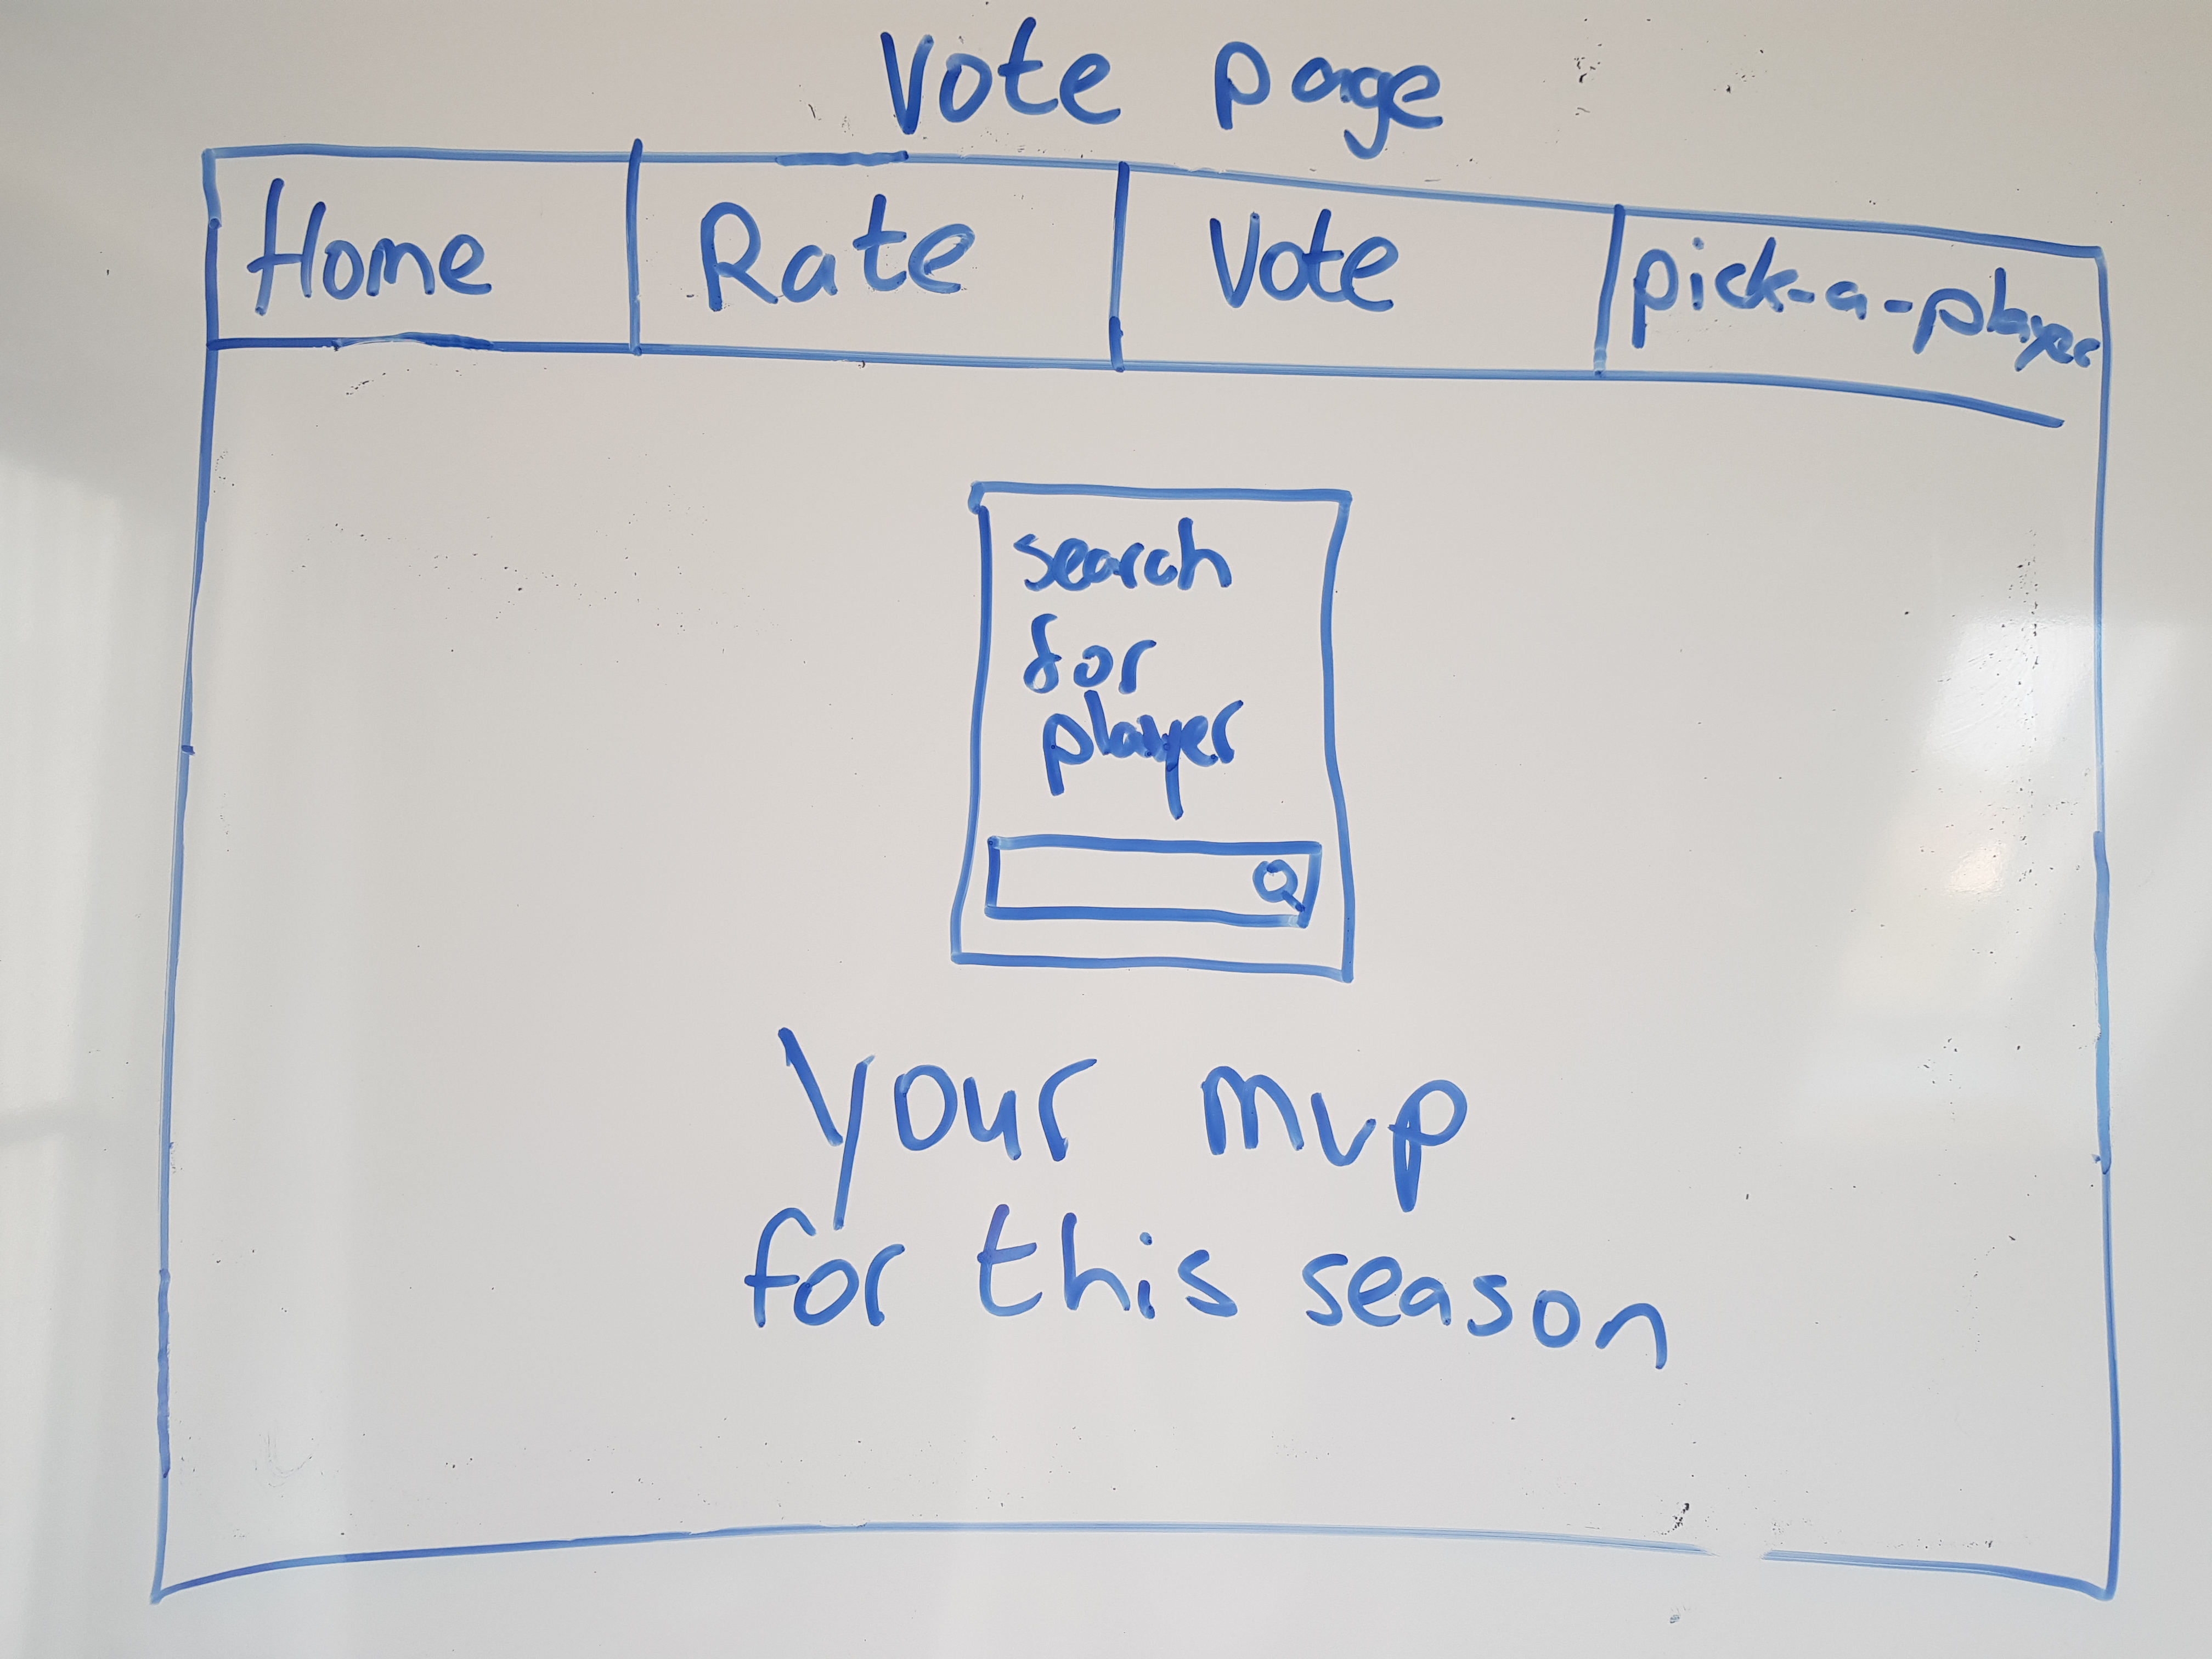 Vote page
Home
Rate
Vote
pick-a-player
search
for
player
your mvp
for this season